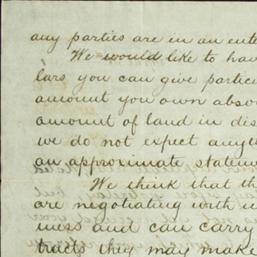 any parties are in an ente
We would like to hav
lars you can give partic
amount you own abov
amount of land in dis
we do not expect anyth
an approximate statem
We think that th
are negotiating with u
ness and can carry
tracts they may make